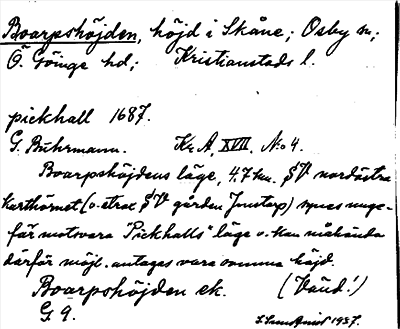 Boarpshöjden, höjd i Skåne; Osby sn;
Ö. Göinge hd; Kristianstads l.
pickhall 1687.
G. Buhrmann. Kr. A. XVII. No 4.
Boarpshöjdens läge, 4.7 km. SV nordöstra
karthörnet (o. strax SV gården Jnstorp) synes unge-
fär motsvara "Pickhalls" läge o. kan måhända
därför möjl. antagas vara samma höjd.
Boarpshöjden ek. (Vänd!)
G. 9. 1937.